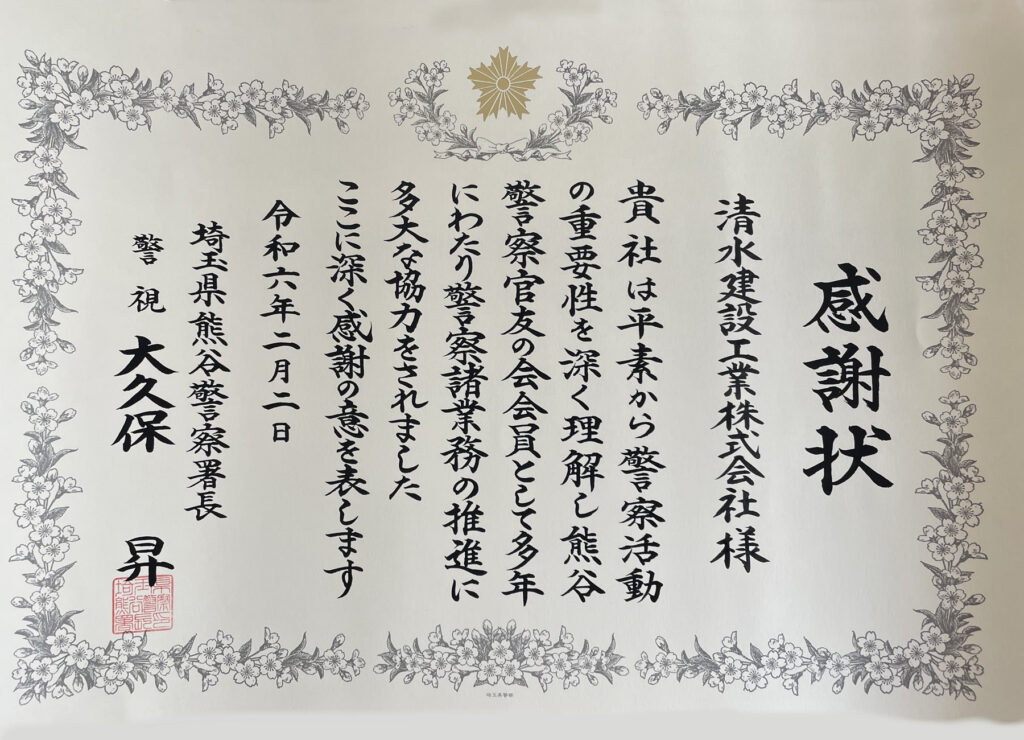 感謝状
清水建設工業株式会社様
貴社は平素から警察活動
の重要性を深く理解し熊谷
警察官友の会会員として多年
にわたり警察諸業務の推進に
多大な協力をされました
ここに深く感謝の意を表します
令和六年二月二日
埼玉県熊谷警察署長
警視 大久保 昇
埼玉県警察